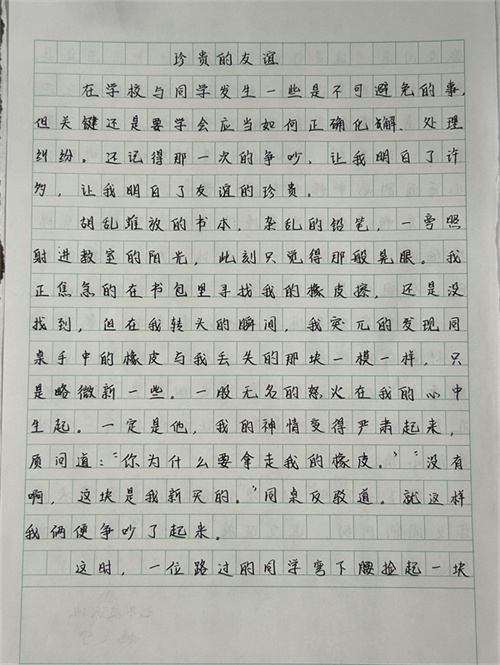 珍贵的友谊
在学校与同学发生一些是不可避免的事,
但关键还是要学会应当如何正确化解、处理
纠纷。还记得那一次的争吵,让我明白了许
多,让我明白了友谊的珍贵。
胡乱堆放的书本,杂乱的铅笔,一旁照
射进教室的阳光,此刻只觉得那般晃眼。我
正焦急的在书包里寻找我的橡皮擦,还是没
找到,但在我转头的瞬间,我突兀的发现同
桌手中的橡皮与我丢失的那块一模一样,只
是略微新一些。一股无名的怒火在我的心中
生起。一定是他,我的神情变得严肃起来,
质问道:“你为什么要拿走我的橡皮。”“没有
啊,这块是我新买的。”同桌反驳道。就这样
我俩便争吵了起来。
这时,一位路过的同学弯下腰捡起一块